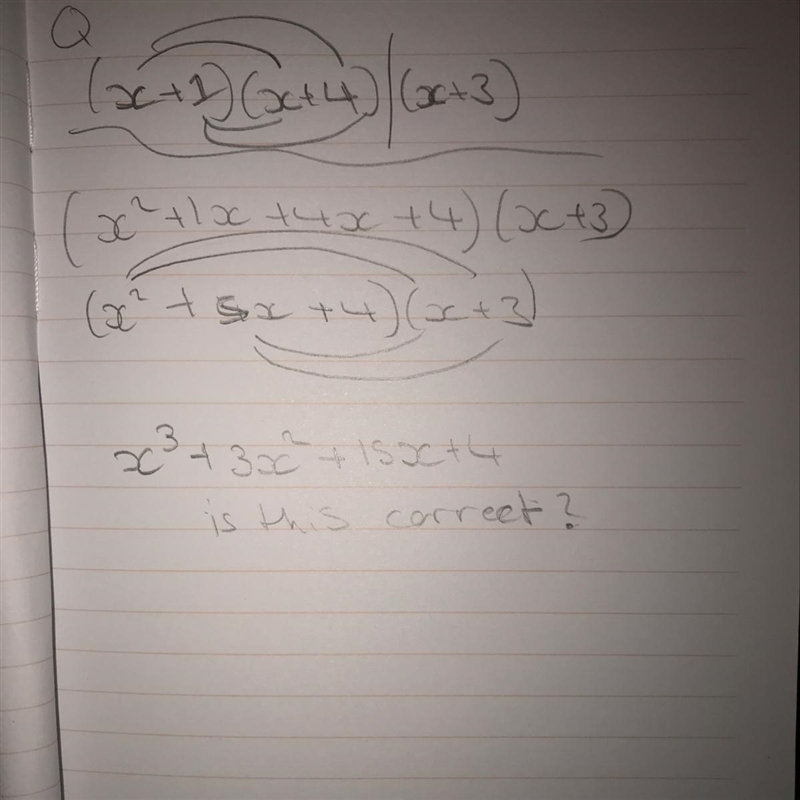 Q
(x+1)(x+4)|(x+3)
(x²+1x+4x+4)(x+3)
(x²+5x+4)(x+3)
x³+3x²+15x+4
is this correct?